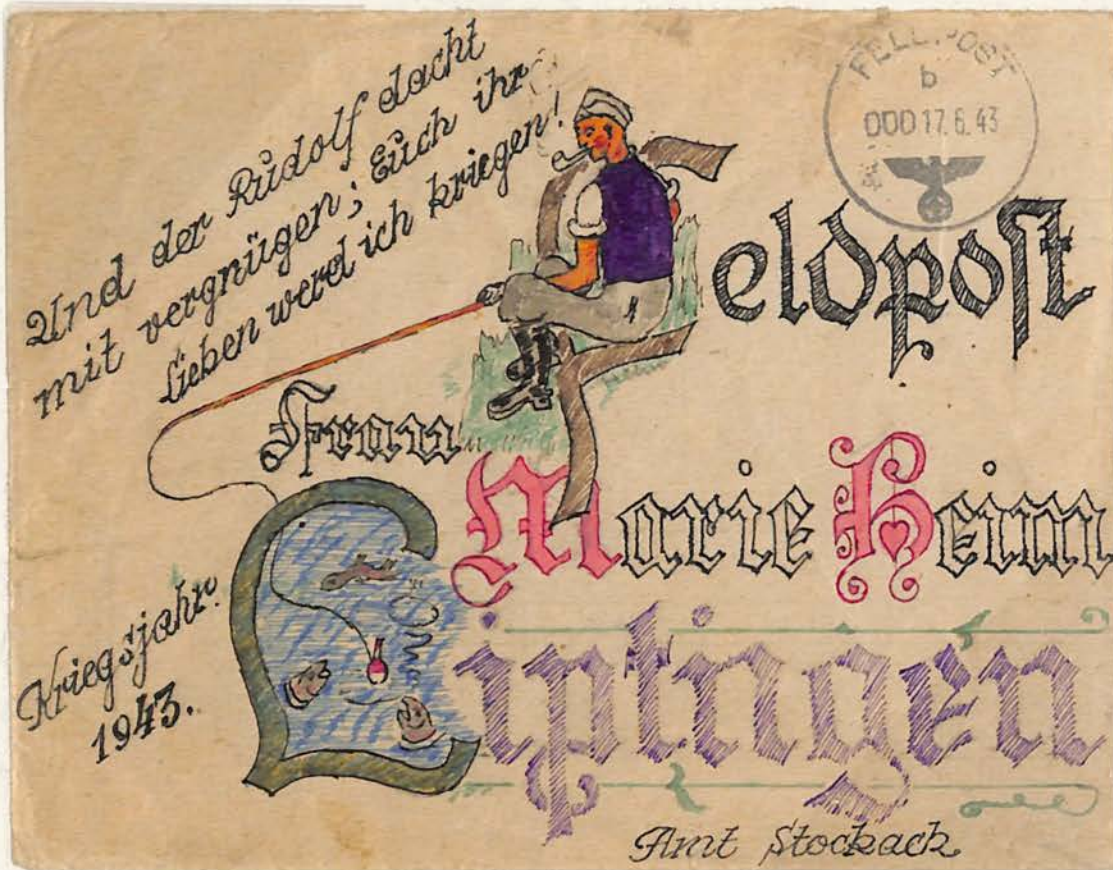 Und der Rudolf dacht
mit vergnügen; Euch ihr
Lieben werd ich kriegen!
FELDPOST
b
000 17.6.43
Feldpost
Frau
Marie Heim
Liptingen
Kriegsjahr.
1943.
Amt Stockach